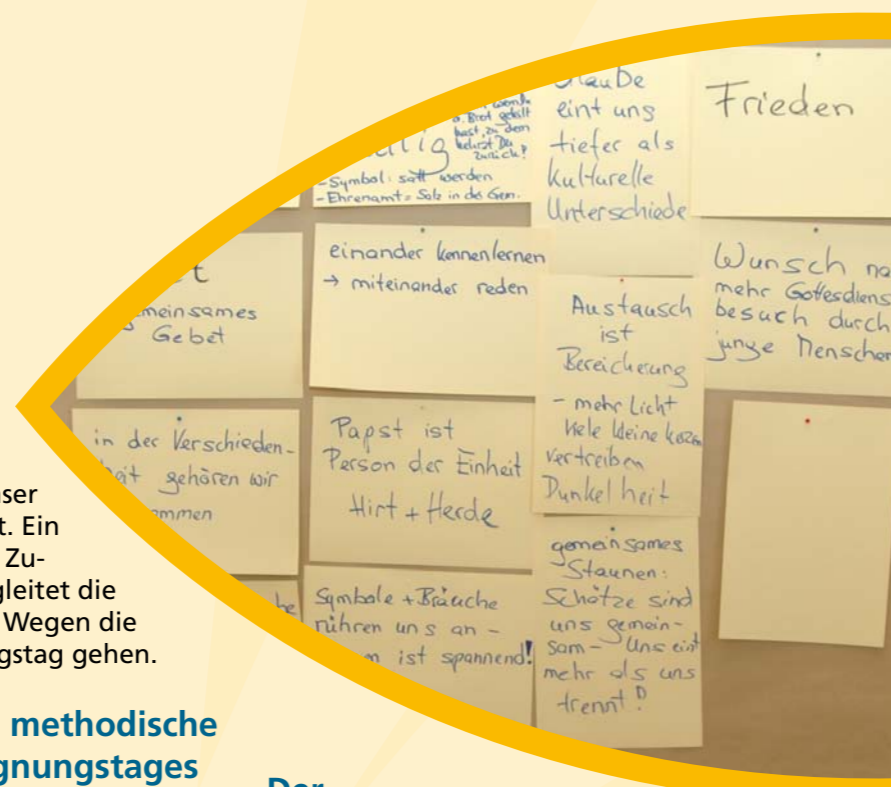 wenn Du
d. Brot geteilt
hast, zu dem
kehrst Du
zurück!
-Symbol: satt werden
-Ehrenamt = Salz in der Gem.
eint uns
tiefer als
Kulturelle
Unterschiede
Frieden
Gebet
einander kennenlernen
→ miteinander reden
Austausch
ist
Bereicherung
- mehr Licht
Viele kleine Kerzen
vertreiben
Dunkelheit
Wunsch
mehr
besuch durch
junge Menschen
in der Verschieden-
gehören wir
Papst ist
Person der Einheit
Hirt + Herde
Symbole + Bräuche
rühren uns an -
ist spannend!
gemeinsames
Staunen:
Schätze sind
uns gemein-
sam - Uns eint
mehr als uns
trennt!
Ein
Zu-
die
Wegen die
gehen.
methodische
Der